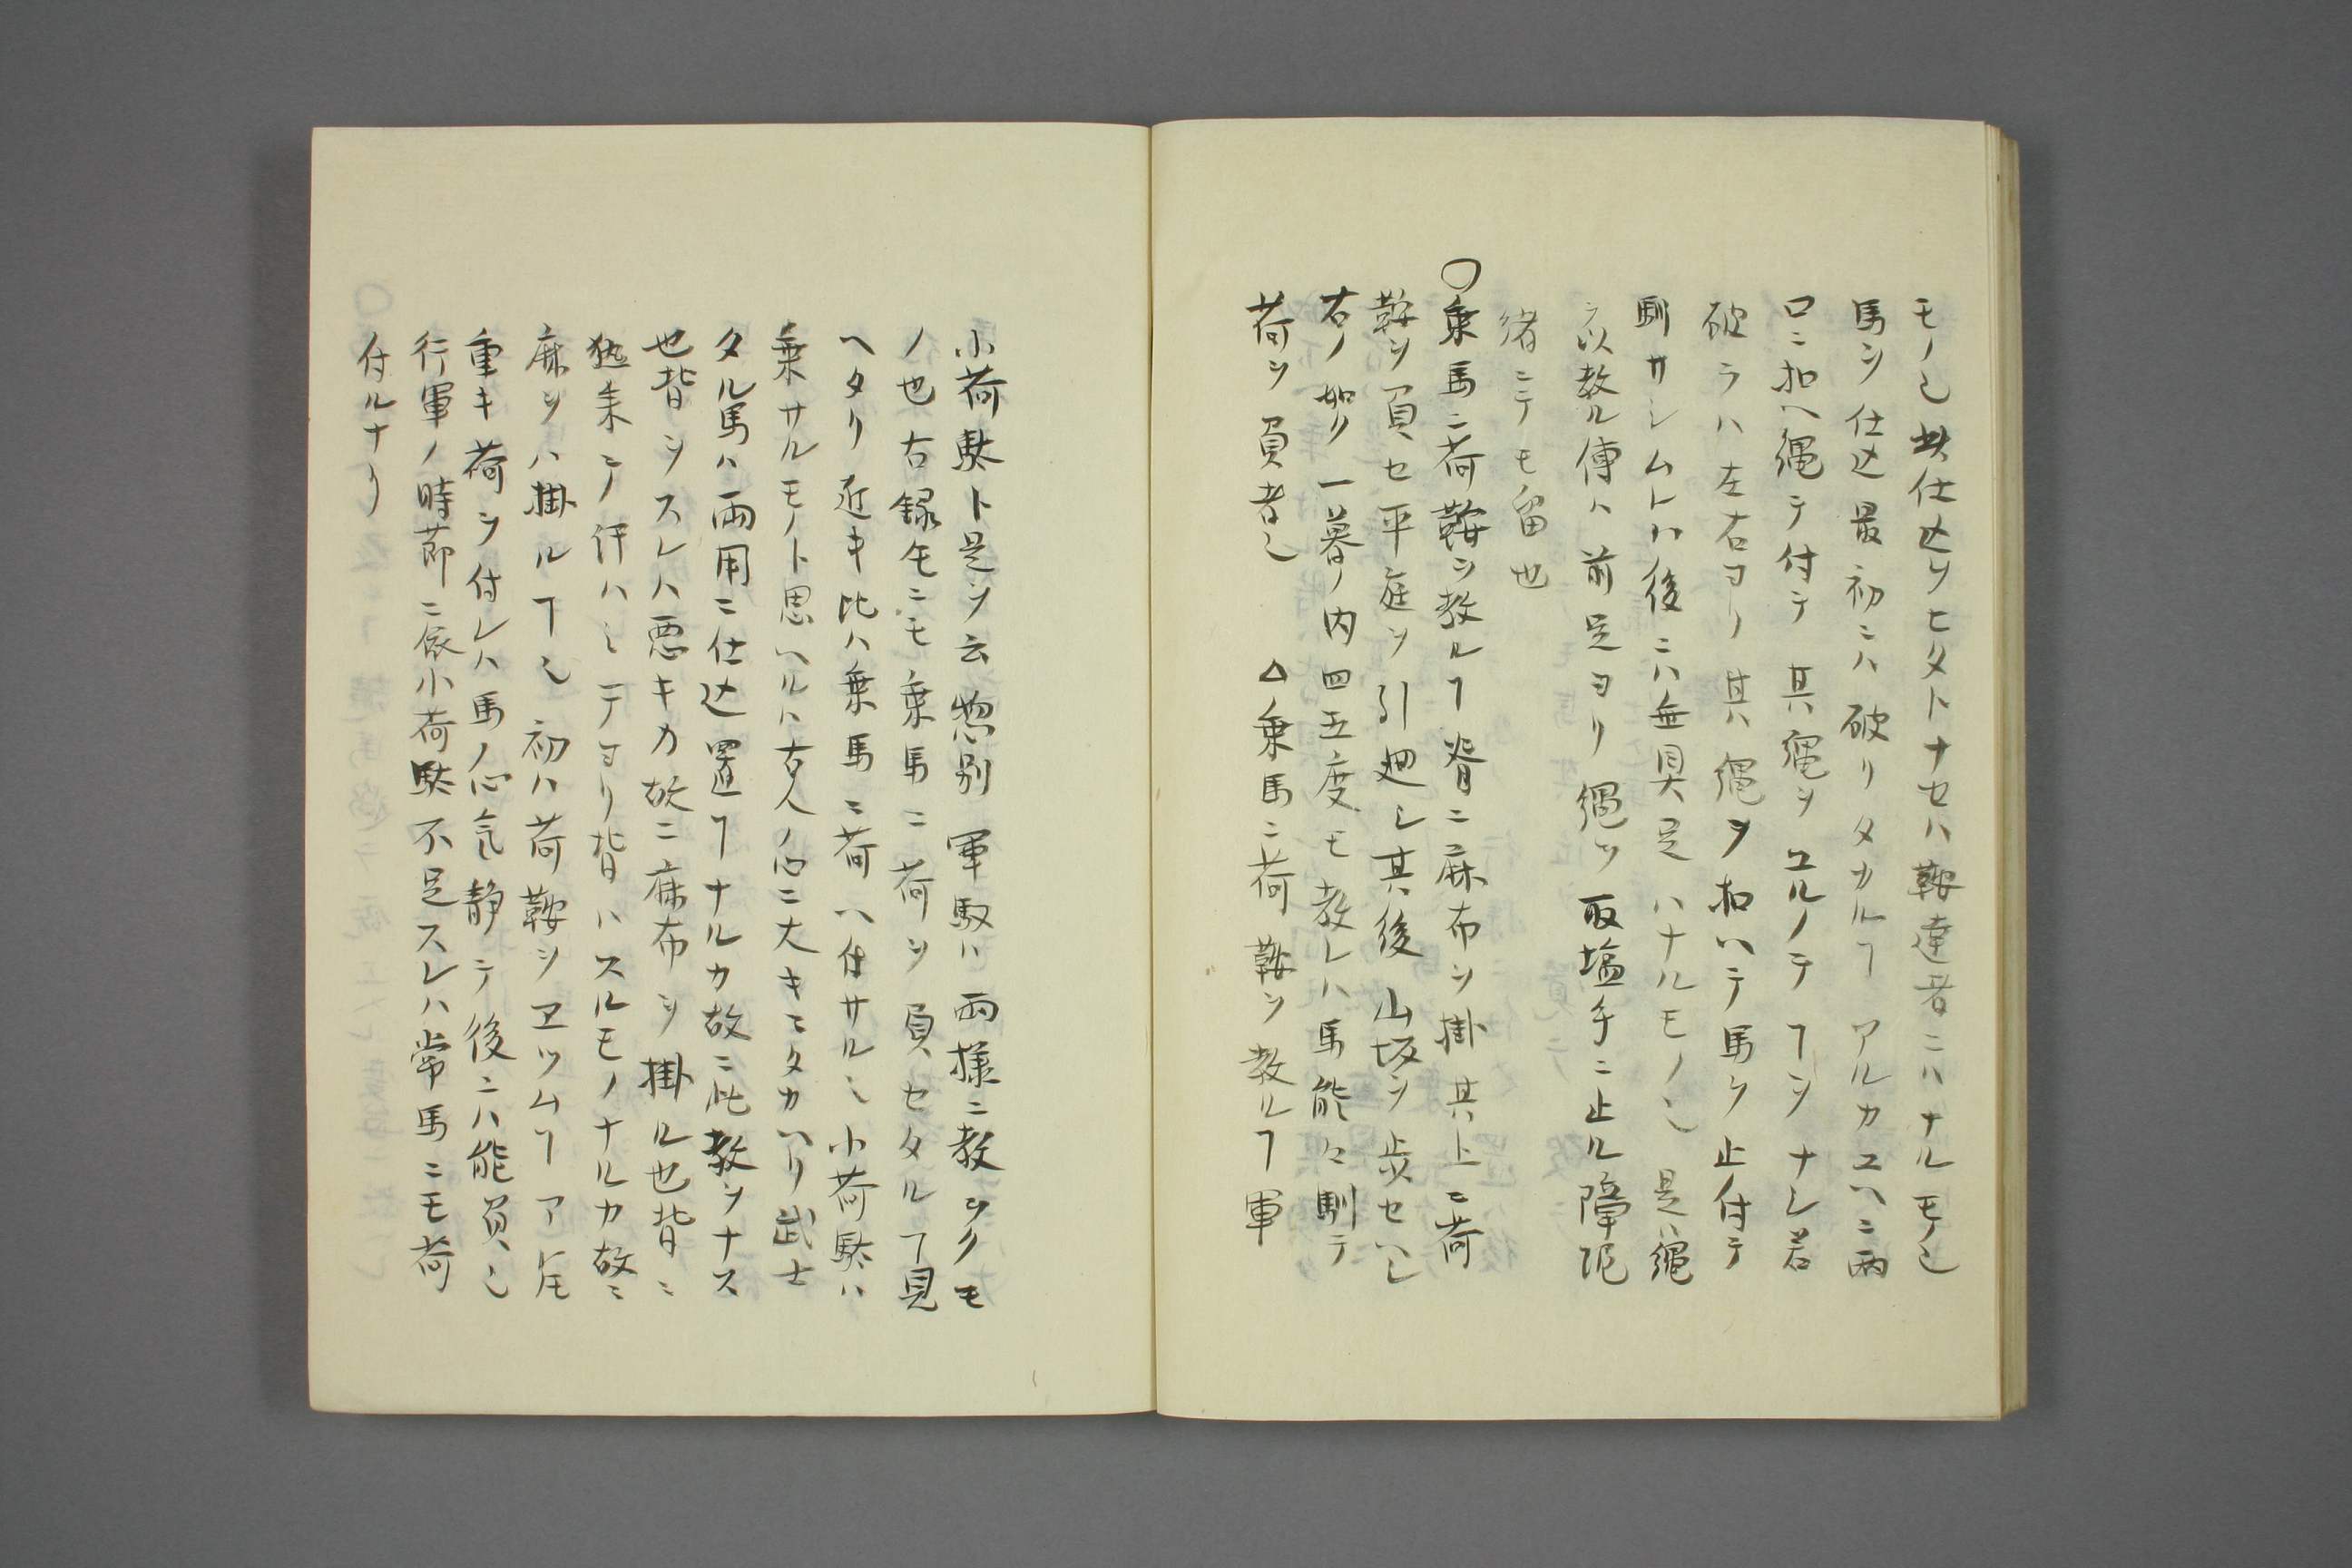 モノ乄此仕込ヲヒタトナセハ鞍達者ニハナルモノ乄
馬ヲ仕込最初ニハ破リタカルヿアルカユヘニ両
口ニ扣ヘ縄テ付テ其縄ヲユルノテヿヲナレ若
破ラハ左右ヨリ其縄ヲ扣ヘテ馬ヲ止付テ
馴サシムレハ後ニハ無具足ハナルモノ乄是ハ縄
ヲ以教ル傳ハ前足ヨリ縄ヲ取塩手ニ止ル障泥
緒ニテモ留也
〇乗馬ニ荷鞍ヲ教ルヿ脊ニ麻布ヲ掛其上ニ荷
鞍ヲ負セ平庭ヲ引廻シ其後山坂ヲ歩セヘシ
右ノ如ク一暮ノ内四五度モ教レハ馬能々馴テ
荷ヲ負者乄 △乗馬ニ荷鞍ヲ教ルヿ軍
小荷駄ト是ヲ云惣別軍馭ハ両様ニ教ヲクモ
ノ也古録毛ニモ乗馬ニ荷ヲ負セタルヿ見
ヘタリ近キ比ハ乗馬ニ荷ヘ付サル乄小荷駄ハ
乗サルモノト思ヘルハ古人ノ心ニ大キニタカヘリ武士
タル馬ハ両用ニ仕込置ヿナルカ故ニ此教ヲナス
也背ヲスレハ悪キカ故ニ麻布ヲ掛ル也背ニ
熱来テ汗ハシテヨリ背ハスルモノナルカ故ニ
麻ヲハ掛ルヿ乄初ハ荷鞍ヲヱツムヿアレ𪜈
重キ荷ヲ付レハ馬ノ心気静テ後ニハ能負乄
行軍ノ時節ニ依小荷駄不足スレハ常馬ニモ荷
付ルナリ